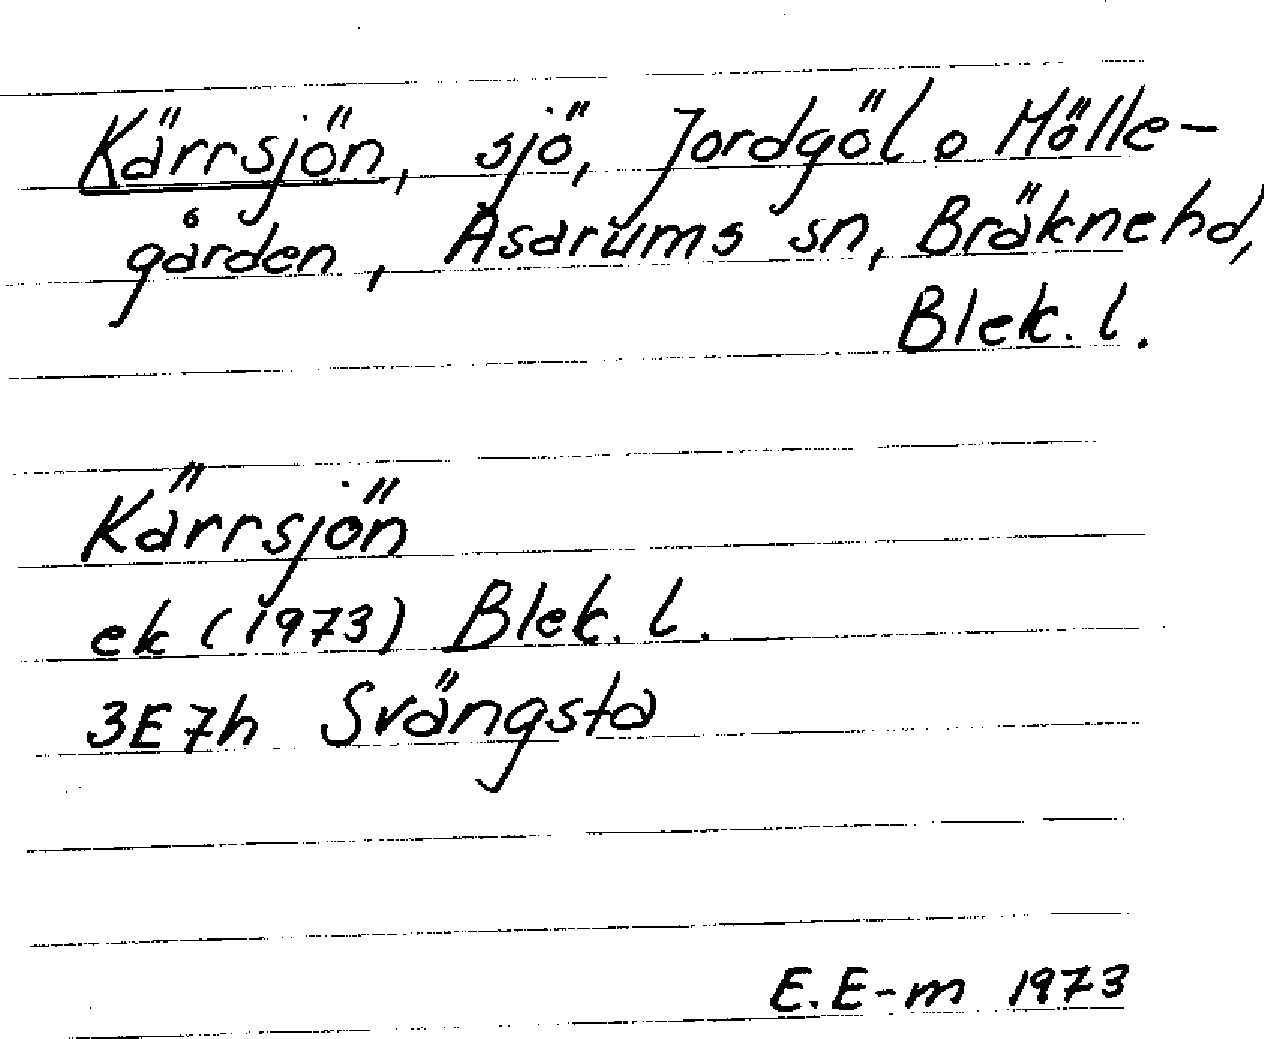 Kärrsjön, sjö, Jordgöl o Mölle-
gården, Asarums sn, Bräknehd,
Blek. l.
Kärrsjön
ek (1973) Blek. l.
3E7h Svängsta
E. E-m 1973